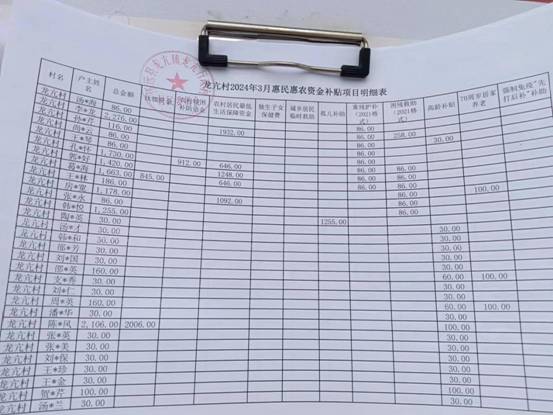 龙亢村2024年3月惠民惠农资金补贴项目明细表
村名 户主姓名 总金额 农村居民最低生活保障资金 独生子女保健费 城乡居民临时救助 孤儿补助 重残护补(2021档) 困残救助(2021档) 高龄补贴 70周岁居家养老 强制免疫"先打后补"补助
龙亢村 汤*海 86.00 86.00
龙亢村 李*龙 2,276.00 1932.00 86.00 258.00
龙亢村 116.00 86.00 30.00
龙亢村 周*云 86.00 86.00
龙亢村 王*琴 86.00
龙亢村 孔*怀 1,730.00 912.00 646.00 86.00 86.00
龙亢村 韩*好 1,420.00 1248.00 86.00 86.00
龙亢村 葛*海 1,663.00 845.00 646.00 86.00 86.00
龙亢村 王*林 186.00 86.00 100.00
龙亢村 房*银 1,178.00 1092.00 86.00
龙亢村 张*永 86.00 86.00
龙亢村 韩*悦 1,255.00 1255.00
龙亢村 陶*英 30.00 30.00
龙亢村 汤*才 30.00 30.00
龙亢村 韩*和 30.00 30.00
龙亢村 邵*芳 30.00 30.00
龙亢村 刘*国 30.00 30.00
龙亢村 邵*英 160.00 60.00 100.00
龙亢村 支*秀 30.00 30.00
龙亢村 刘*仁 30.00 30.00
龙亢村 周*英 160.00 60.00 100.00
龙亢村 潘*华 30.00 30.00
龙亢村 陈*凤 2,106.00 2006.00 100.00
龙亢村 张*英 30.00 30.00
龙亢村 张*美 30.00 30.00
龙亢村 刘*保 30.00 30.00
龙亢村 王*珍 30.00 30.00
龙亢村 王*金 30.00 30.00
龙亢村 贺*芹 100.00 100.00
龙亢村 汤*兰 30.00 30.00